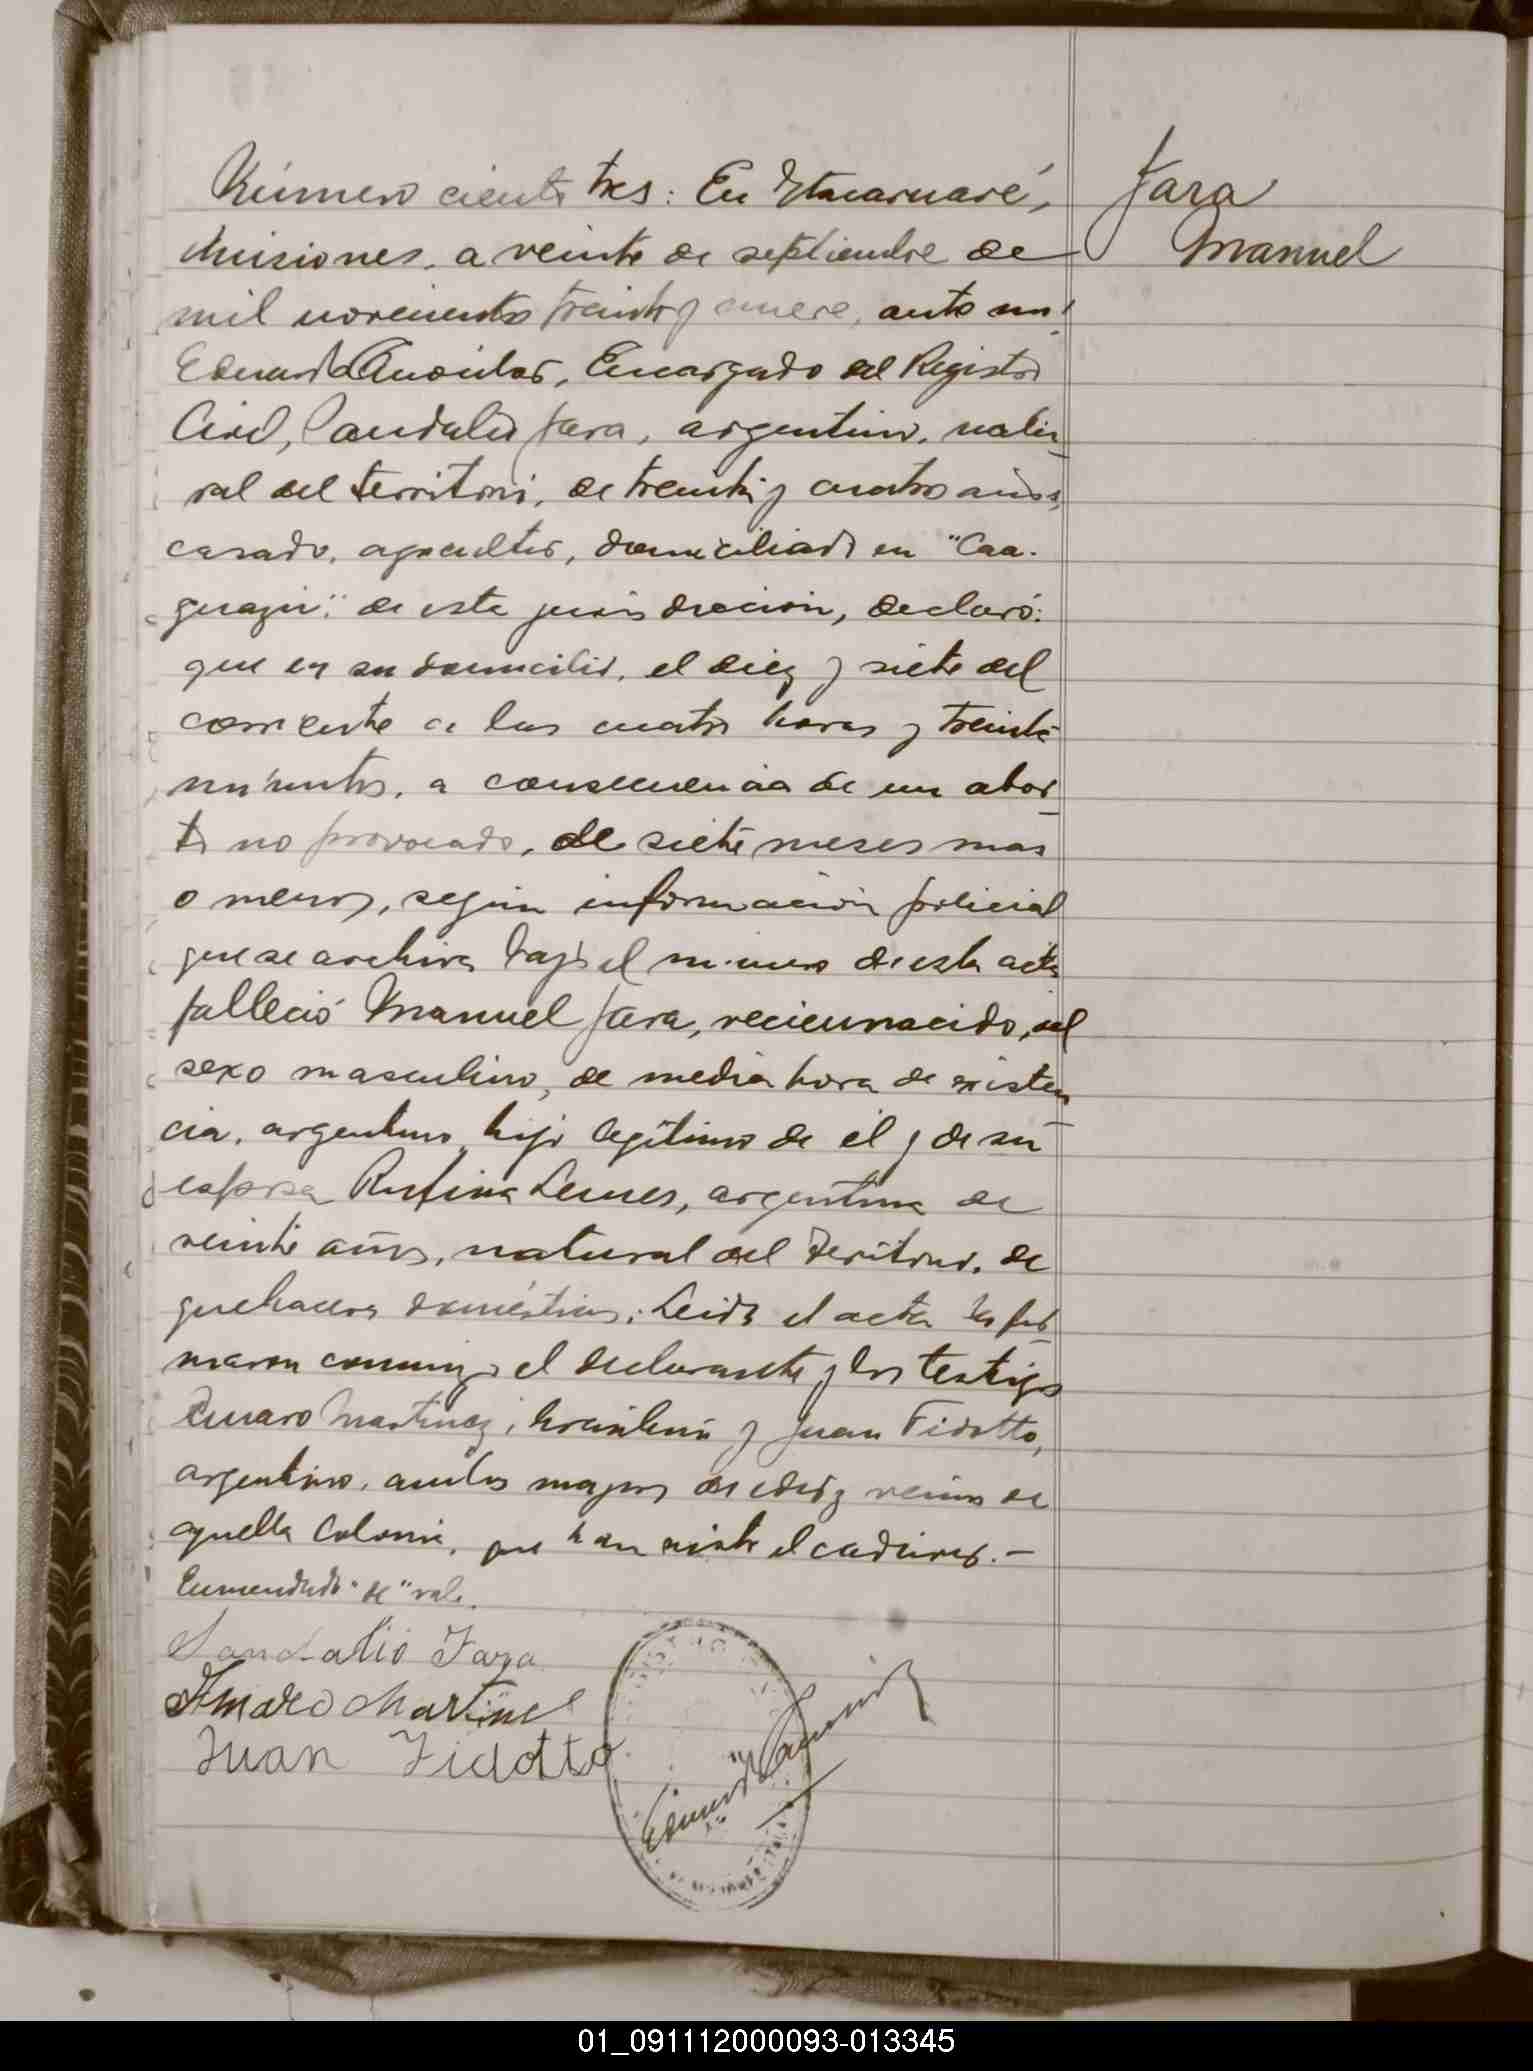 Número ciento tres: En Itacaruaré,
Misiones, a veinte de septiembre de
mil novecientos treinta y nueve, ante mí
Eduardo, Encargado del Registro
Civil, Sandalio Jara, argentino, natu-
ral del territorio, de treinta y cuatro años,
casado, agricultor, domiciliado en "Caa-
guazú" de esta jurisdicción, declaró:
que en su domicilio, el diez y siete del
corriente a las cuatro horas y treinta
minutos, a consecuencia de un abor-
to no provocado, de siete meses mas
o menos, según información policial
que se archiva bajo el número de esta acta
falleció Manuel Jara, recien nacido, del
sexo masculino, de media hora de existen
cia, argentino, hijo legítimo de él y de su
esposa Rufina Lemes, argentina de
veinte años, natural del territorio, de
quehaceres domésticos. Leida el acta la fir-
maron conmigo el declarante y los testigos
Amaro Martinez, brasilero y Juan Fidotto,
argentino, ambos mayores de edad y vecinos de
aquella Colonia, que han visto el cadáver.-
Enmendado "de" vale.
Sandalio Jara
Amaro Martinez
Juan Fidotto
Eduardo
Jara
Manuel
01_091112000093-013345